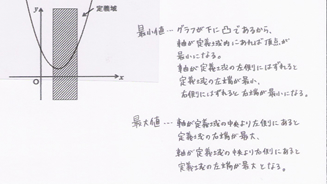 y
定義域
O
x
最小値… グラフが下に凸であるから、
軸が定義域内にあれば頂点が
最小になる。
軸が定義域の左側にはずれると
定義域の左端が最小、
右側にはずれると右端が最小になる。
最大値… 軸が定義域の中央より左側にあると
定義域の右端が最大、
軸が定義域の中央より右側にあると
定義域の左端が最大となる。